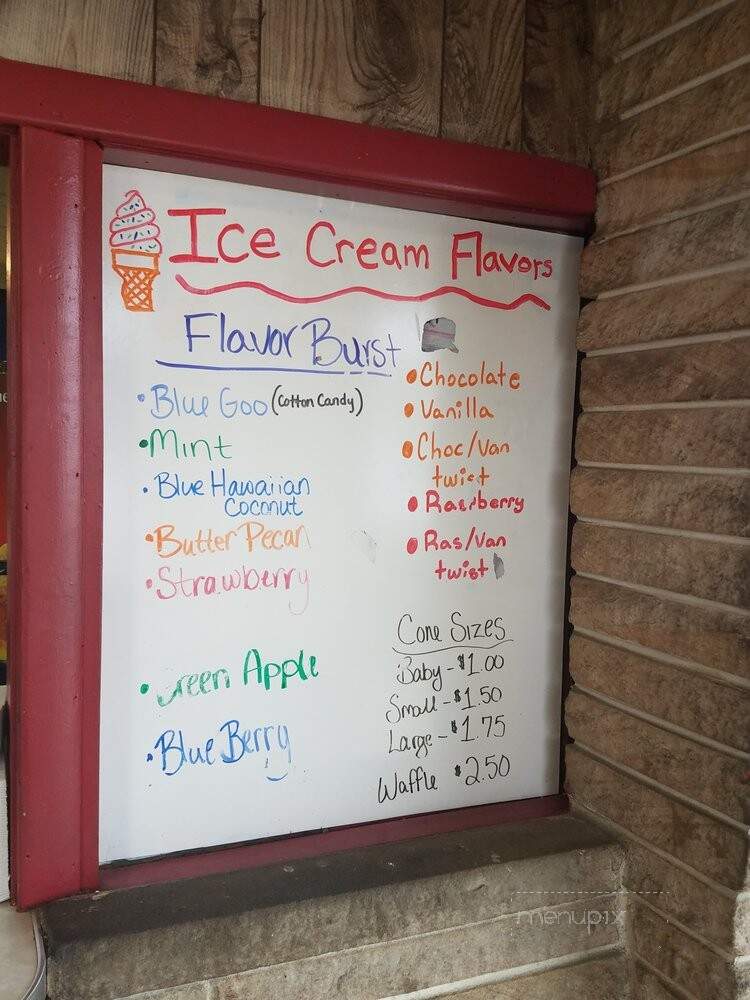 Ice Cream Flavors
Flavor Burst
• Blue Goo (Cotton Candy)
• Mint
• Blue Hawaiian
Coconut
• Butter Pecan
• Strawberry
• Green Apple
• Blue Berry
• Chocolate
• Vanilla
• Choc/Van
twist
• Rasberry
• Ras/Van
twist
Cone Sizes
Baby - $1.00
Small - $1.50
Large - $1.75
Waffle $2.50
menupix